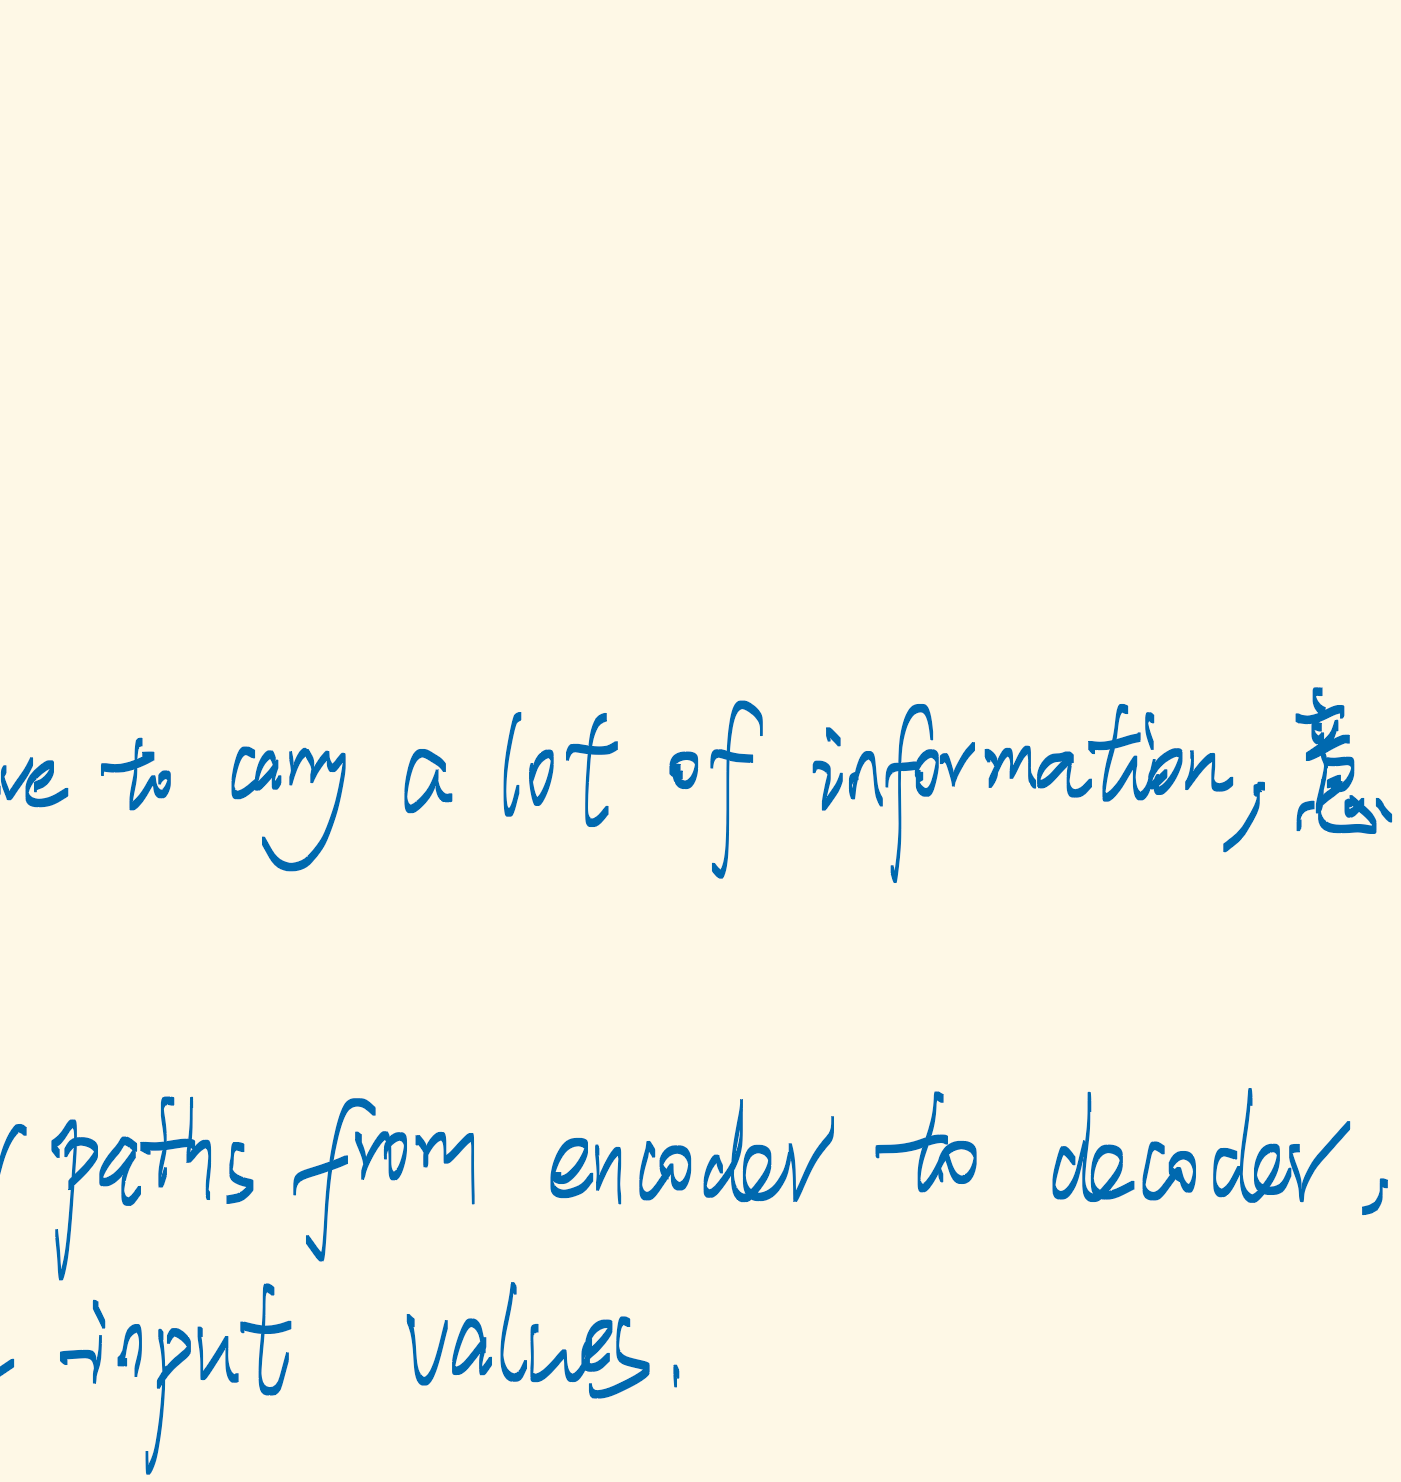 ve to carry a lot of information, 意
paths from encoder to decoder,
input values.